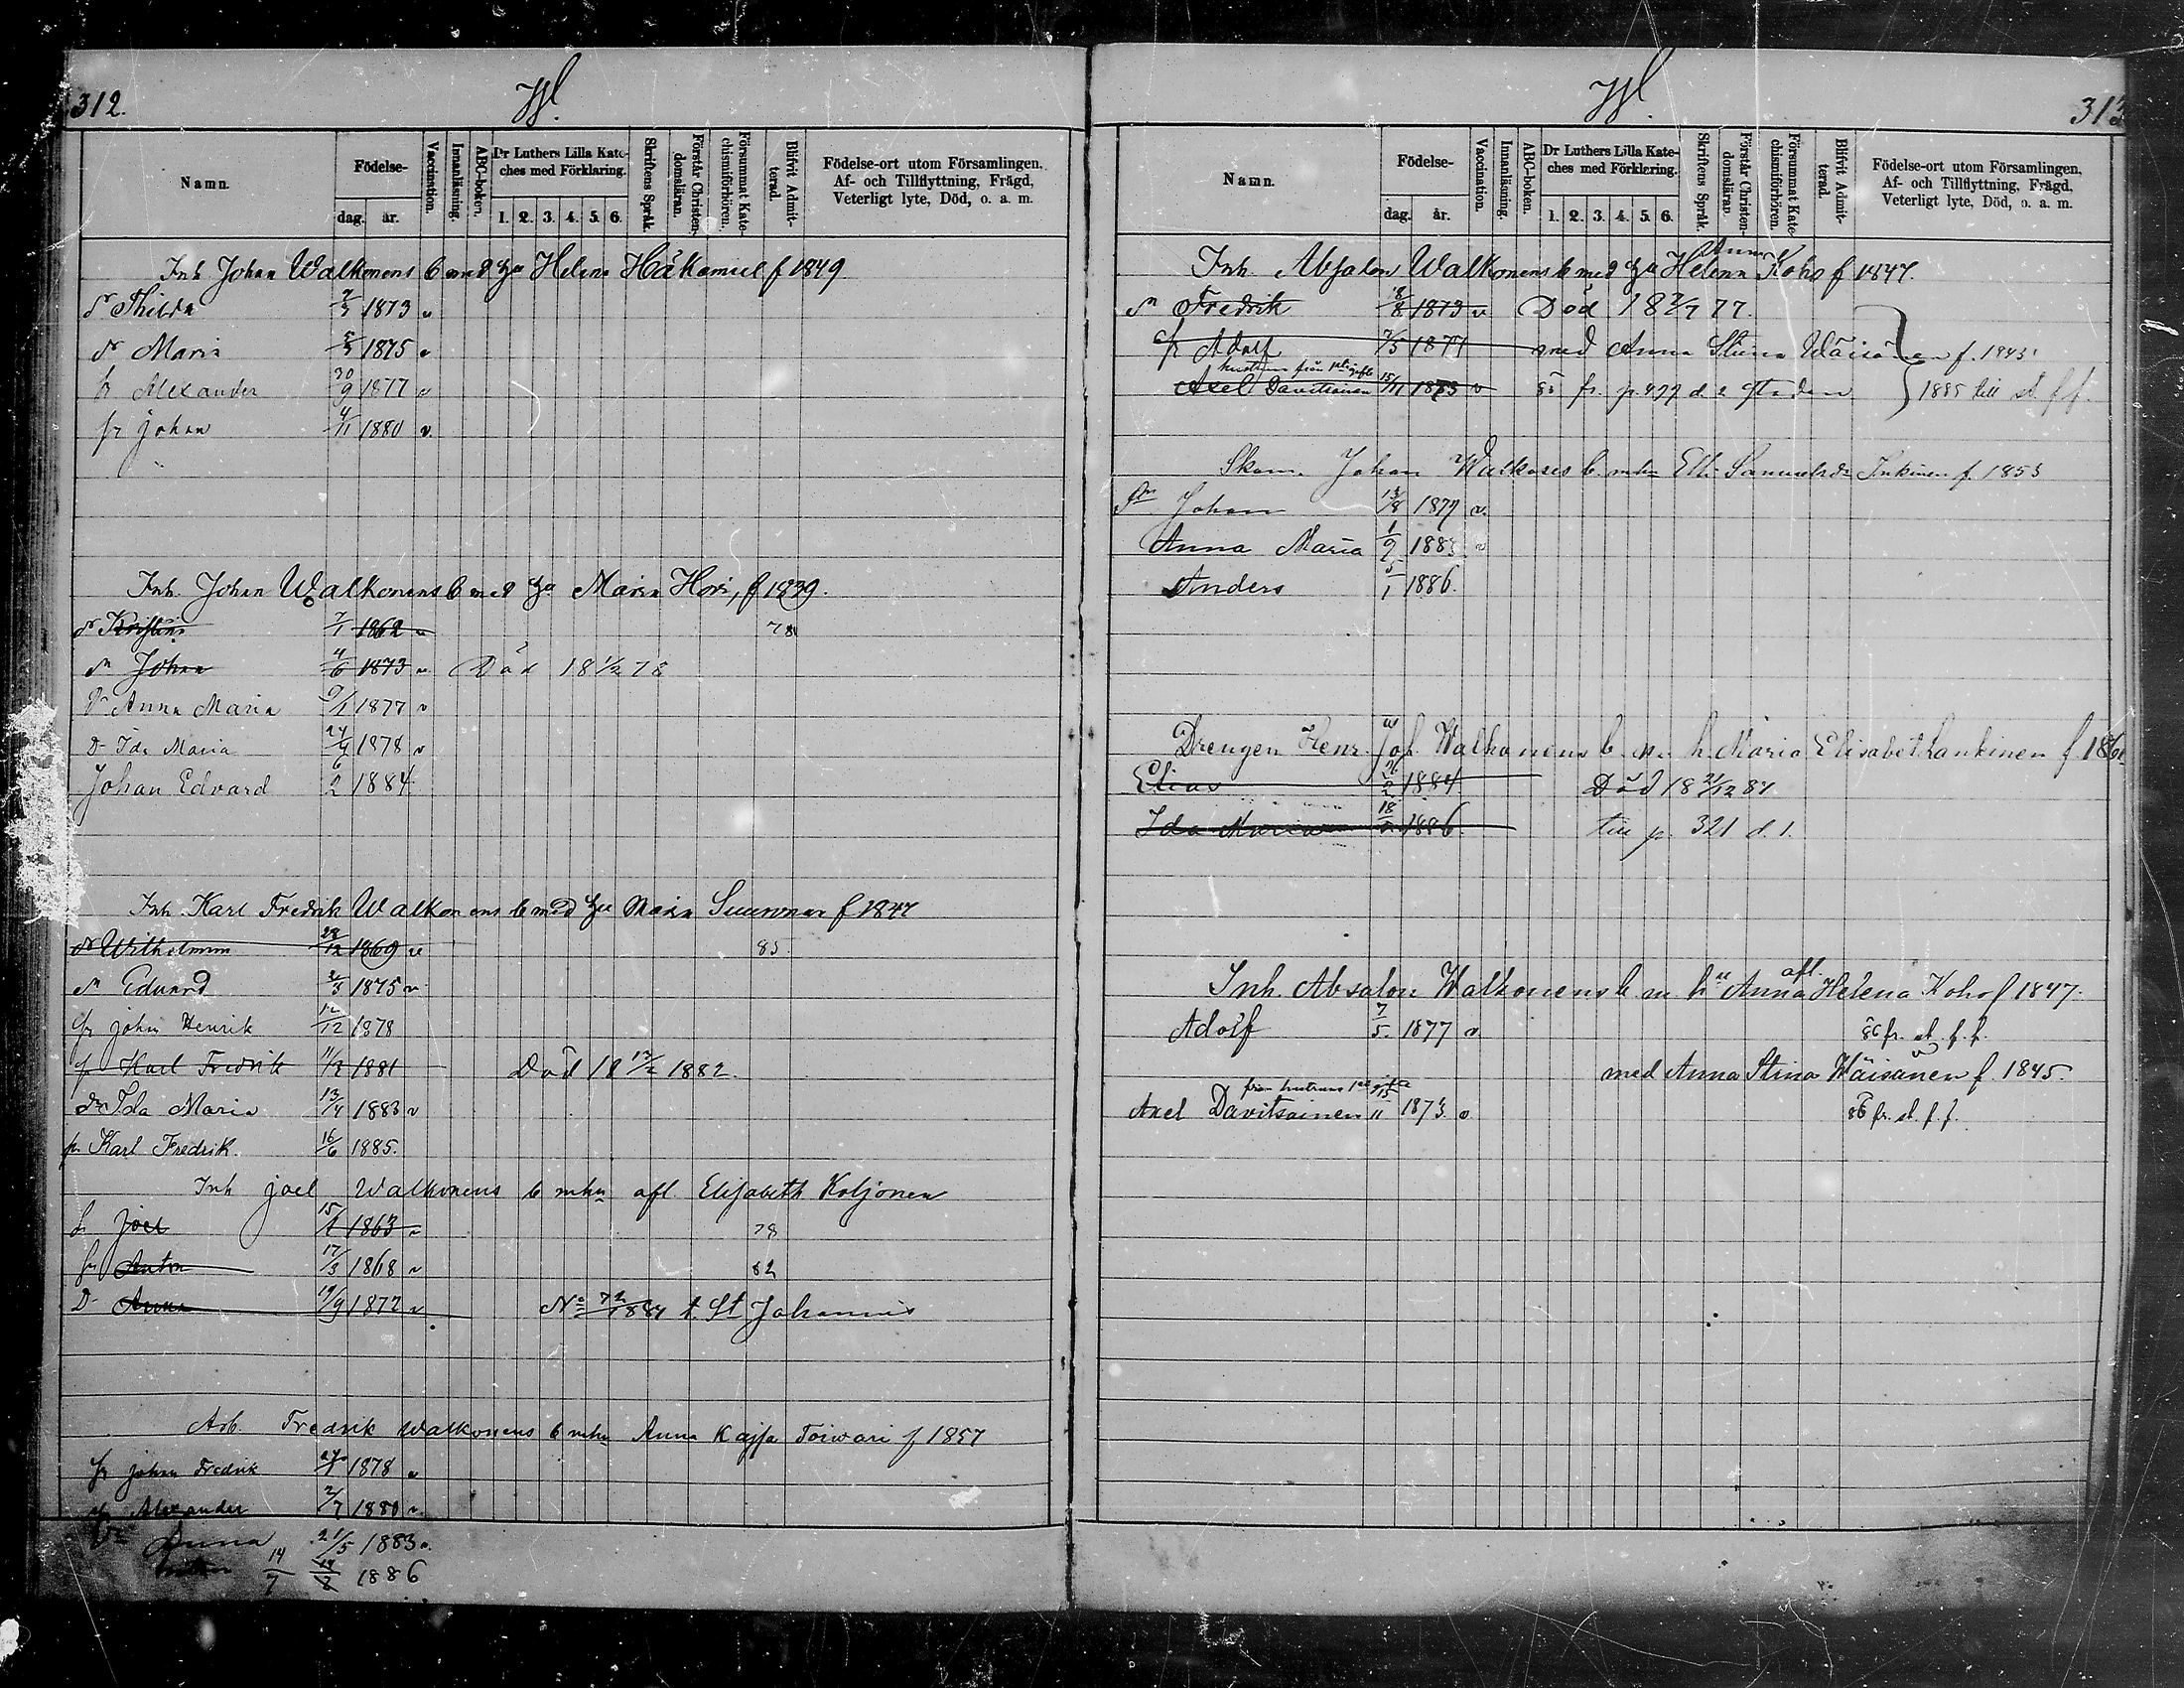 312.
W.
Namn.
Födelse-
dag. år.
Vaccination.
Innanläsning.
ABC-boken.
Dr Luthers Lilla Kate-
ches med Förklaring.
1. 2. 3. 4. 5. 6.
Skriftens Språk.
Förstår Christen-
domsläran.
Försummat Kate-
chismiförhören.
Blifvit Admit-
terad.
Födelse-ort utom Församlingen,
Af- och Tillflyttning, Frägd,
Veterligt lyte, Död, o. a. m.
Inh Johan Walkonens b med Helena f 1849
Thilda 1873 v
Maria 1875 v
Alexander 30/9 1877 v
Johan 4/11 1880 v.
Inh. Johan Walkonens b med Maria f 1839.
7/1 1862 v 78
Johan 4/6 1873 v Död 18 1/2 78
Anna Maria 9/1 1877 v
D- Ida Maria 24/4 1878 v
Johan Edvard 6/2 1884
Inh Karl Fredrik Walkonens b med Maria f 1847
Wilhelmina 28/12 1869 v 85
Eduard 1875 v
Johan Henrik 12/12 1878
Karl Fredrik 1881 Död 1882.
Ida Maria 13/4 1883 v
Karl Fredrik. 16/6 1885.
Inh Joel Walkonens b mhu afl. Elisabeth Koljonen
Joel 15/1 1863 v 78
Anton 17/3 1868 v 82
D- Anna 19/9 1872 v No 72/1884 t. St Johannis
Arb. Fredrik Walkonens b mhu Anna Kajsa Toiwari f 1857
Johan Fredrik 1878 v
Alexander 2/7 1880 v.
Anna 21/5 1883 v.
14/7 14/8 1886
W.
313
Namn.
Födelse-
dag. år.
Vaccination.
Innanläsning.
ABC-boken.
Dr Luthers Lilla Kate-
ches med Förklaring.
1. 2. 3. 4. 5. 6.
Skriftens Språk.
Förstår Christen-
domsläran.
Försummat Kate-
chismiförhören.
Blifvit Admit-
terad.
Födelse-ort utom Församlingen,
Af- och Tillflyttning, Frägd,
Veterligt lyte, Död, o. a. m.
Anna
Inh. Absalon Walkonens b med Helena Koho f 1847.
Fredrik 1873 v Död 18 2/7 77.
Adolf 7/5 1877 med Anna Stina Wäisänen f. 1845
hustrun från 1sta gifte
Axel Davitsainen 15/11 1873 v 85 fr. p. 477 d. 2 1885 till d. f f.
Johan Walkonens b. mhu Elli Inkinen f. 1853
Johan 13/8 1879 v.
Anna Maria 1/9 1883 v
Anders 5/1 1886.
Drengen Henr. Jos. Walkonens b. m. h. Maria Elisabet Lankinen f 186
Elias 26/2 1884. Död 18 21/12 84
Ida Maria 18/5 1886. till p. 321 d. 1.
afl.
Inh. Absalon Walkonens b. m. hu Anna Helena Koho f 1847.
Adolf 7/5. 1877 v 86 fr. d. f. f.
med Anna Stina Wäisänen f. 1845.
från hustruns 1sta gifte
Axel Davitsainen 15/11 1873 v 86 fr. d. f. f.